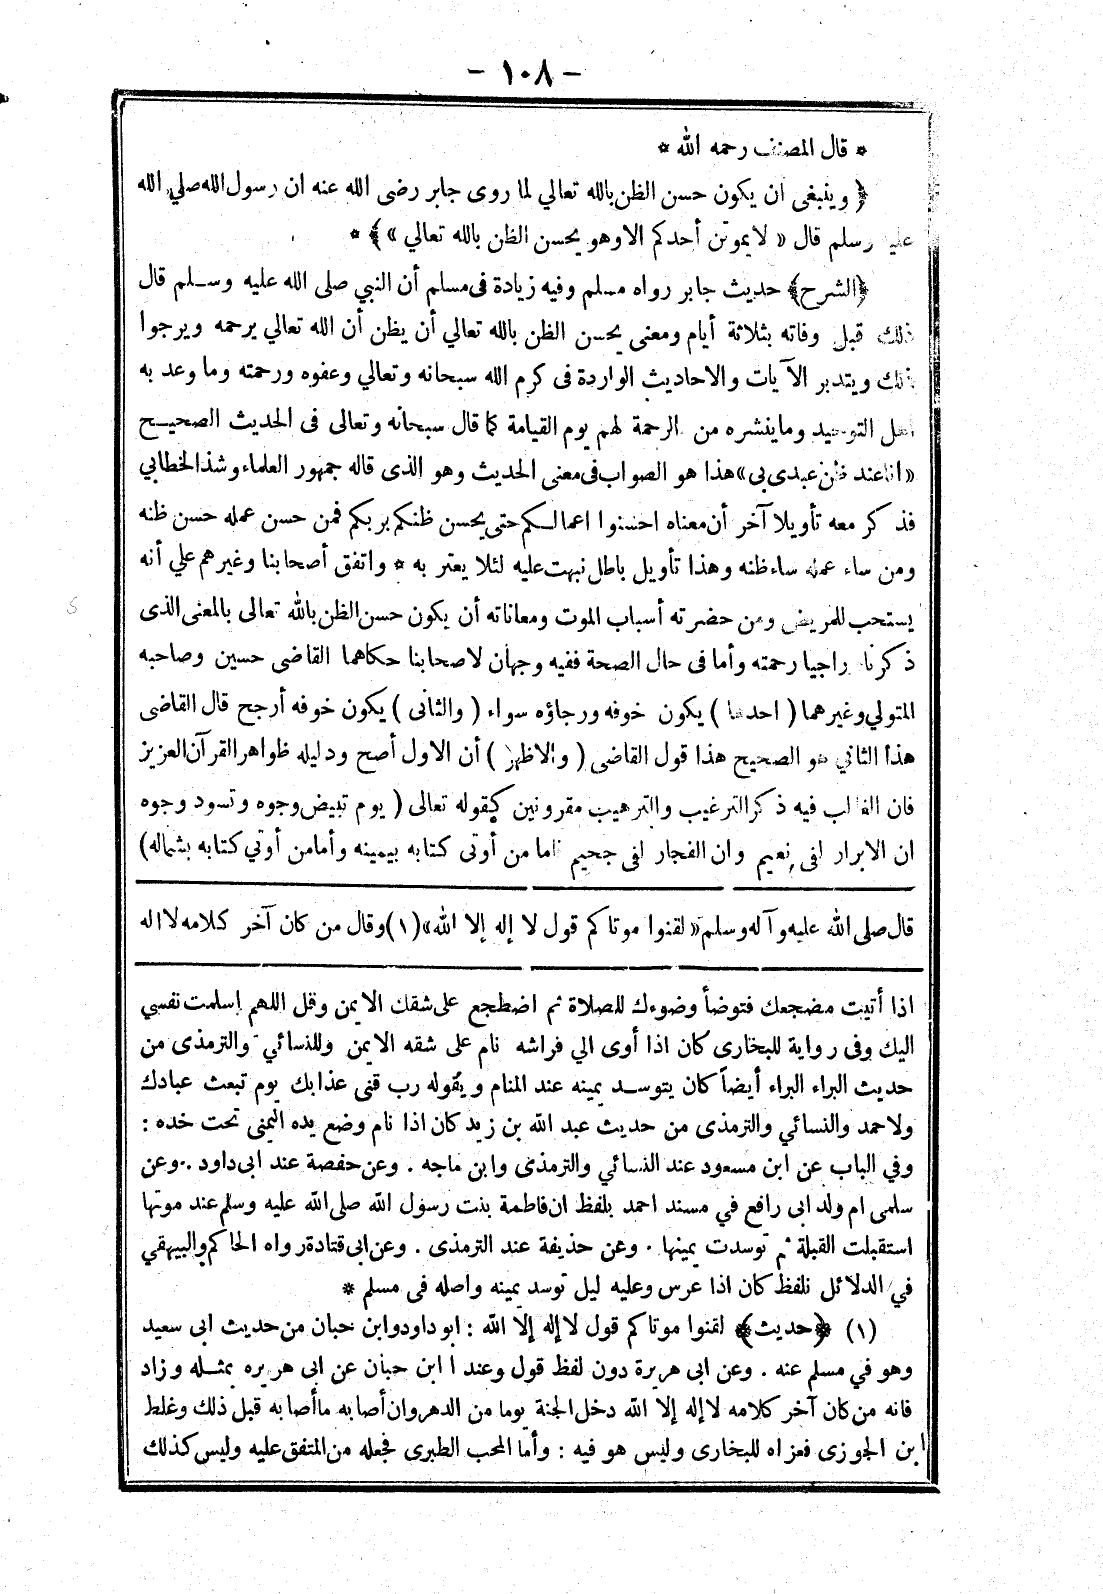 - ١٠٨ -
* قال المصنف رحمه الله *
﴿ وينبغى أن يكون حسن الظن بالله تعالي لما روى جابر رضى الله عنه ان رسول الله صلي الله
عليه وسلم قال « لايموتن أحدكم الا وهو يحسن الظن بالله تعالي » ﴾ *
﴿الشرح﴾ حديث جابر رواه مسلم وفيه زيادة فى مسلم أن النبي صلى الله عليه وسلم قال
ذلك قبل وفاته بثلاثة أيام ومعنى يحسن الظن بالله تعالي أن يظن أن الله تعالي يرحمه ويرجوا
ذلك ويتدبر الآيات والاحاديث الواردة فى كرم الله سبحانه وتعالي وعفوه ورحمته وما وعد به
اهل التوحيد وما ينشره من الرحمة لهم يوم القيامة كما قال سبحانه وتعالى فى الحديث الصحيح
« انا عند ظن عبدى بي » هذا هو الصواب فى معنى الحديث وهو الذى قاله جمهور العلماء وشذ الخطابي
فذكر معه تأويلا آخر أن معناه احسنوا اعمالكم حتى يحسن ظنكم بربكم فمن حسن عمله حسن ظنه
ومن ساء عمله ساء ظنه وهذا تأويل باطل نبهت عليه لئلا يغتر به * واتفق أصحابنا وغيرهم علي أنه
يستحب للمريض ومن حضرته أسباب الموت ومعاناته أن يكون حسن الظن بالله تعالى بالمعنى الذى
ذكرناه راجيا رحمته وأما فى حال الصحة ففيه وجهان لاصحابنا حكاهما القاضى حسين وصاحبه
المتولي وغيرهما ( احدهما ) يكون خوفه ورجاؤه سواء ( والثانى ) يكون خوفه أرجح قال القاضى
هذا الثاني هو الصحيح هذا قول القاضى ( والاظهر ) أن الاول أصح ودليله ظواهر القرآن العزيز
فان الغالب فيه ذكر الترغيب والترهيب مقرونين كقوله تعالى ( يوم تبيض وجوه وتسود وجوه
ان الابرار لفى نعيم وان الفجار لفى جحيم فاما من أوتى كتابه بيمينه وأما من أوتي كتابه بشماله)
قال صلى الله عليه وآله وسلم « لقنوا موتاكم قول لا إله إلا الله » (١) وقال من كان آخر كلامه لا اله
اذا أتيت مضجعك فتوضأ وضوءك للصلاة ثم اضطجع على شقك الايمن وقل اللهم اسلمت نفسي
اليك وفى رواية للبخارى كان اذا أوى الي فراشه نام على شقه الايمن وللنسائي والترمذى من
حديث البراء البراء أيضاً كان يتوسد يمينه عند المنام ويقوله رب قنى عذابك يوم تبعث عبادك
ولاحمد والنسائي والترمذى من حديث عبد الله بن زيد كان اذا نام وضع يده اليمنى تحت خده :
وفي الباب عن ابن مسعود عند النسائي والترمذى وابن ماجه . وعن حفصة عند ابى داود . وعن
سلمى ام ولد ابى رافع في مسند احمد بلفظ ان فاطمة بنت رسول الله صلى الله عليه وسلم عند موتها
استقبلت القبلة ثم توسدت يمينها . وعن حذيفة عند الترمذى . وعن ابى قتادة رواه الحاكم والبيهقي
في الدلائل بلفظ كان اذا عرس وعليه ليل توسد يمينه واصله فى مسلم *
(١) ﴿حديث﴾ لقنوا موتاكم قول لا إله إلا الله : ابو داود وابن حبان من حديث ابى سعيد
وهو في مسلم عنه . وعن ابى هريرة دون لفظ قول وعند ا ابن حبان عن ابى هريره بمثله وزاد
فانه من كان آخر كلامه لا إله إلا الله دخل الجنة يوما من الدهر وان أصابه ما أصابه قبل ذلك وغلط
ابن الجوزى فعزاه للبخارى وليس هو فيه : وأما المحب الطبرى فجعله من المتفق عليه وليس كذلك